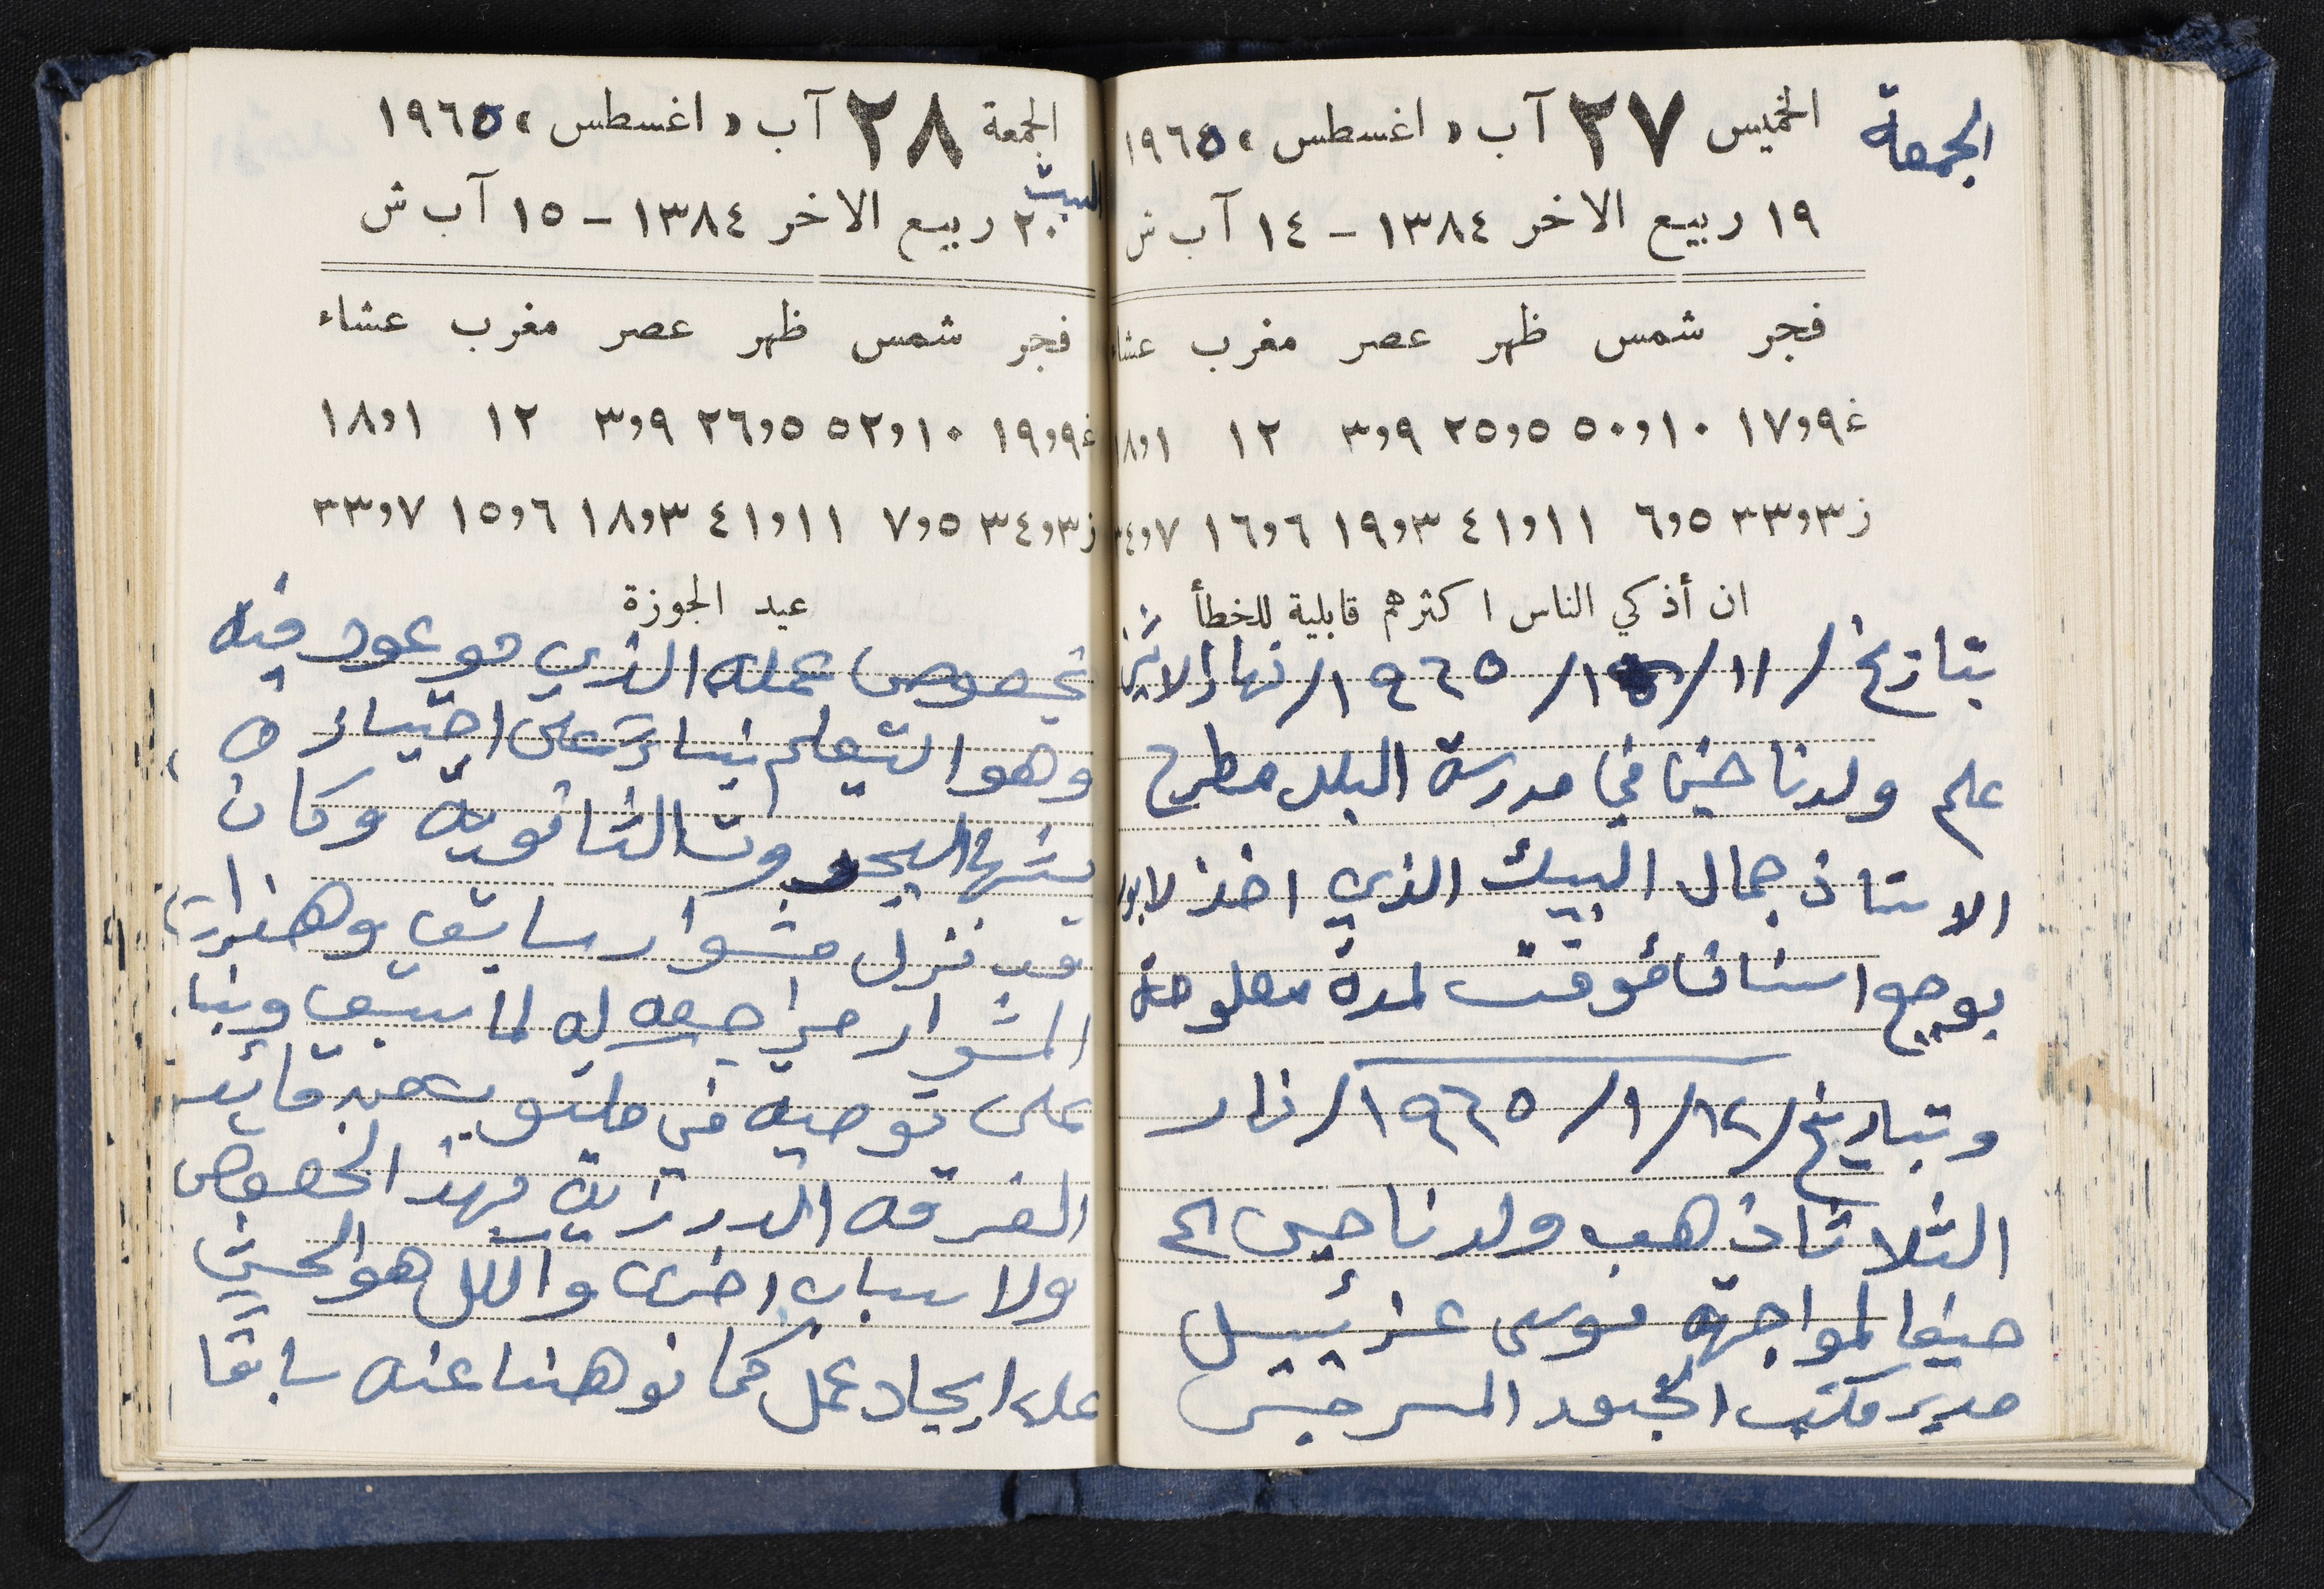 الجمعة
الخميس ٢٧ آب «اغسطس» ١٩٦٥
١٩ ربيع الاخر ١٣٨٤ – ١٤ آب ش
فجر شمس ظهر عصر مغرب عشاء
غ ٩و١٧ ١٠و٥٠ ٥و٢٥ ٩و٣ ١٢ ١و١٨
ز ٣و٣٣ ٥و٦ ١١و٤١ ٣و١٩ ٦و١٦ ٧و٣٤
ان أذكي الناس اكثرهم قابلية للخطأ
بتاريخ /١١/١/١٩٦٥/ نهار الاثنين
علم ولدنا حنينا في مدرسة البلد مطرح
الاستاذ جمال البيك الذي اخذ لابور
بوجع اسنان مؤقت لمدة معلومة
وتباريخ /١٢/١/١٩٦٥/ نهار
الثلاثا ذهب ولدنا حين الى
حيفا لمواجهة موسى عزئييل
مدير مكتب الجنود المسرحين
الجمعة ٢٨ آب «اغسطس» ١٩٦٥
السبت
٢٠ ربيع الاخر ١٣٨٤ – ١٥ آب ش
فجر شمس ظهر عصر مغرب عشاء
غ ٩و١٩ ١٠و٥٢ ٥و٢٦ ٩و٣ ١٢ ١و١٨
ز ٣و٣٤ ٥و٧ ١١و٤١ ٣و١٨ ٦و١٥ ٧و٣٣
عيد الجوزة
بخصوص عمله الذي موعود فيه
وهو التعليم بناءً على اختياره
الثانوية وكان
قد نزل مشوار سابق وهذا
المشوار مراجعه له لما سبق وبنا
على توصيه في مكتوب من قائد
الفرقه الدرزية بهذا الخصوص
ولاسباب اخرى والكل هو الحث
على ايجاد عمل كما نوهنا عنه سابقا